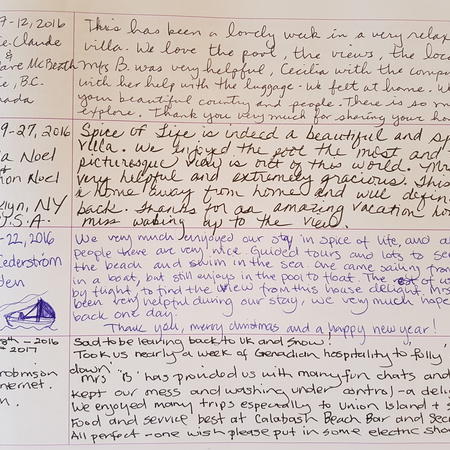 7-12, 2016 This has been a lovely week in a very relax
e-Claude villa. We love the pool, the views, the loc
& Mrs B. was very helpful, Cecilia with the comput
ave McBeath with her help with the luggage. We felt at home. W
e, B.C. your beautiful country and people. There is so m
nada explore. Thank you very much for sharing your ho
9-27, 2016 Spice of Life is indeed a beautiful and sp
a Noel villa. We enjoyed the pool the most and
picturesque view is out of this world. Mrs
on Noel very helpful and extremely gracious. This
a home away from home and will defin
lyn, NY back. Thanks for an amazing vacation ho
U.S.A. miss waking up to the view.
-22, 2016 We very much enjoyed our stay in Spice of life, and a
Cederström people there are very nice. Guided tours and lots to se
den the beach and swim in the sea. One came sailing from
in a boat, but still enjoys in the pool to float. The of u
by flight to find the view from this house delight. Mrs
been very helpful during our stay, we very much hope
back one day.
Thank you, merry christmas and a happy new year!
- 2016 Sad to be leaving back to UK and snow!
2017 Took us nearly a week of Grenadian hospitality to fully
down
robinson Mrs 'B' has provided us with many fun chats and
nternet. kept our mess and washing under control - a deli
n. We enjoyed many trips especially to Union Island + s
Food and service best at Calabash Beach Bar and Sec
All perfect - one wish please put in some electric sho